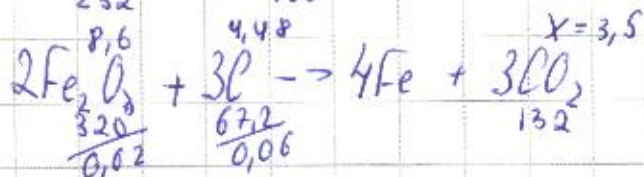 8,6 4,48 X = 3,5
2Fe₂O₃ + 3C --> 4Fe + 3CO₂
320 67,2 132
0,02 0,06